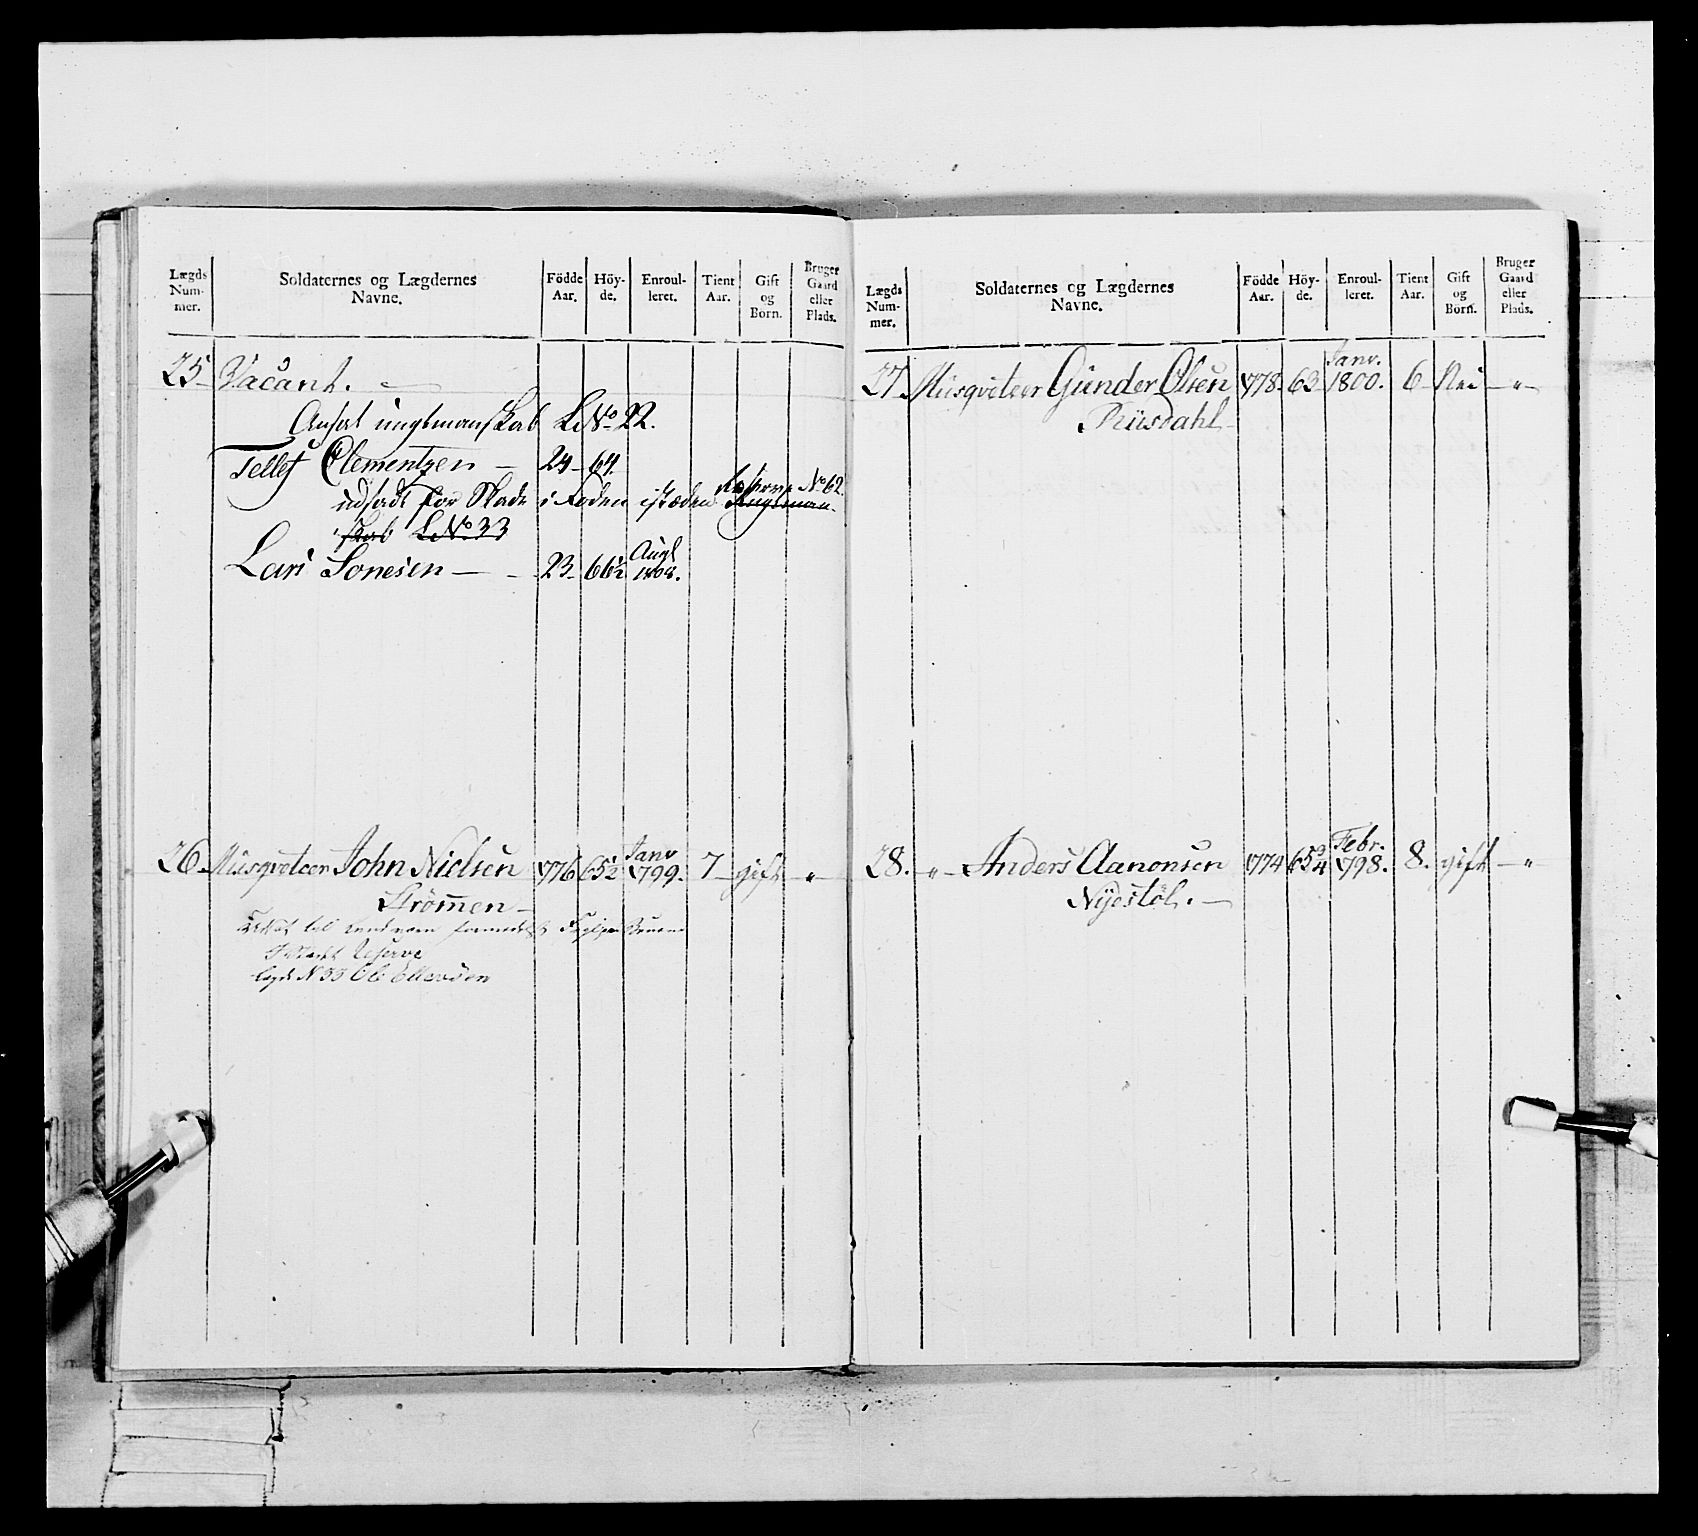 Lægds Num- mer.
Soldaternes og Lægdernes Navne.
Födde Aar.
Höy- de.
Enroul- leret.
Tient Aar.
Gift og Born.
Bruger Gaard eller Plads.
25 Vacant.
Ansat ungtmanskab L No 22.
Tellef Clementzen 24 64
udsadt for Skade i Foden istæden Reserve No 62. Ungtman-
skab L No 33
Lars Sonesen 23 66½ Augt 1808.
26 Musqveteer John Nielsen 776 65½ Janv 799. 7 gift "
Strömmen
Reserve
Lægd N 33 Ole
Lægds Num- mer.
Soldaternes og Lægdernes Navne.
Födde Aar.
Höy- de.
Enroul- leret.
Tient Aar.
Gift og Born.
Bruger Gaard eller Plads.
27 Musqveteer Gunder Olsen 778. 63 Janv. 1800. 6 Nei "
Riisdahl
28. " Anders Aanonsen 774 65¾ Febr. 798. 8. gift "
Nyestöl.